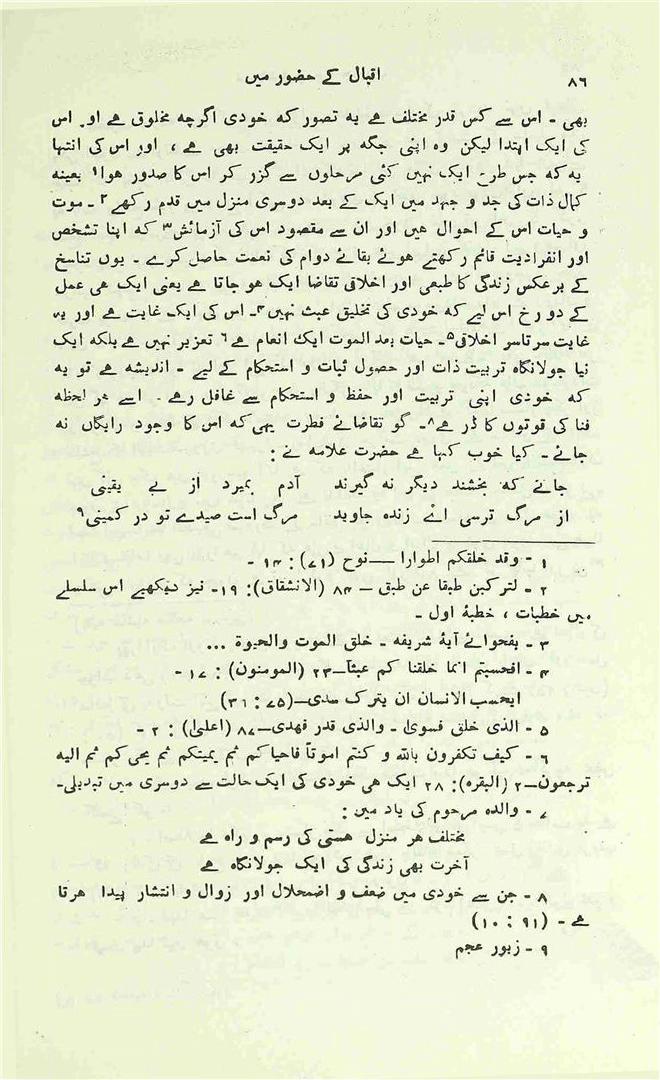 ۸۶ اقبال کے حضور میں
بھی - اس سے کس قدر مختلف ہے یہ تصور کہ خودی اگرچہ مخلوق ہے اور اس
کی ایک ابتدا لیکن وہ اپنی جگہ پر ایک حقیقت بھی ہے ، اور اس کی انتہا
یہ کہ جس طرح ایک نہیں کئی مرحلوں سے گزر کر اس کا صدور ہوا۱ بعینہ
کمال ذات کی جد و جہد میں ایک کے بعد دوسری منزل میں قدم رکھے۲ - موت
و حیات اس کے احوال ہیں اور ان سے مقصود اس کی آزمائش۳ کہ اپنا تشخص
اور انفرادیت قائم رکھتے ہوئے بقائے دوام کی نعمت حاصل کرے - یوں تناسخ
کے برعکس زندگی کا طبعی اور اخلاقی تقاضا ایک ہو جاتا ہے یعنی ایک ہی عمل
کے دو رخ اس لیے کہ خودی کی تخلیق عبث نہیں۴ - اس کی ایک غایت ہے اور یہ
غایت سرتاسر اخلاقی۵ - حیات بعد الموت ایک انعام ہے۶ تعزیر نہیں ہے بلکہ ایک
نیا جولانگاہ تربیت ذات اور حصول ثبات و استحکام کے لیے - اندیشہ ہے تو یہ
کہ خودی اپنی تربیت اور حفظ و استحکام سے غافل رہے - اسے ہر لحظہ
فنا کی قوتوں کا ڈر ہے۸ - گو تقاضائے فطرت یہی کہ اس کا وجود رایگاں نہ
جائے - کیا خوب کہا ہے حضرت علامہ نے :
جانے کہ بخشند دیگر نہ گیرند آدم بمیرد از بے یقینی
از مرگ ترسی اے زندہ جاوید مرگ است صیدے تو در کمینی۹
۱ - وقد خلقکم اطوارا — نوح (۷۱) : ۱۴ -
۲ - لترکبن طبقا عن طبق — ۸۴ (الانشقاق) : ۱۹ - نیز دیکھیے اس سلسلے
میں خطبات ، خطبۂ اول -
۳ - بفحوائے آیۂ شریفہ - خلق الموت والحیوۃ ...
۴ - افحسبتم انما خلقنا کم عبثاً — ۲۳ (المومنون) : ۱۷ -
ایحسب الانسان ان یترک سدی — (۷۵ : ۳۶)
۵ - الذی خلق فسویٰ - والذی قدر فھدی — ۸۷ (اعلیٰ) : ۲ -
۶ - کیف تکفرون باللہ و کنتم امواتاً فاحیا کم ثم یمیتکم ثم یحی کم ثم الیہ
ترجعون — ۲ (البقرہ) : ۲۸ ایک ہی خودی کی ایک حالت سے دوسری میں تبدیلی -
۷ - والدہ مرحوم کی یاد میں :
مختلف ہر منزل ہستی کی رسم و راہ ہے
آخرت بھی زندگی کی ایک جولانگاہ ہے
۸ - جن سے خودی میں ضعف و اضمحلال اور زوال و انتشار پیدا ہوتا
ہے - (۹۱ : ۱۰)
۹ - زبور عجم